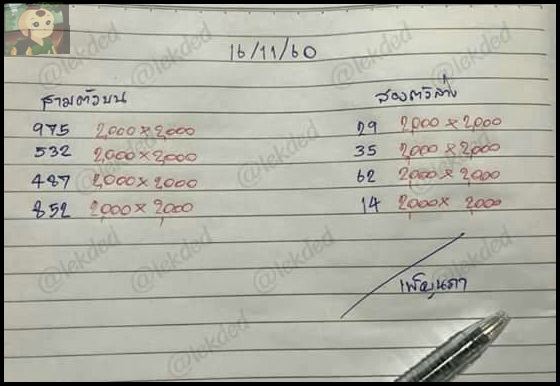 16/11/60
สามตัวบน
975 2,000 × 2,000
532 2,000 × 2,000
487 2,000 × 2,000
852 2,000 × 2,000
สองตัวล่าง
29 2,000 × 2,000
35 2,000 × 2,000
62 2,000 × 2,000
14 2,000 × 2,000
@lekded
@lekded
@lekded
@lekded
@lekded
@lekded
@lekded
@lekded
@lekded